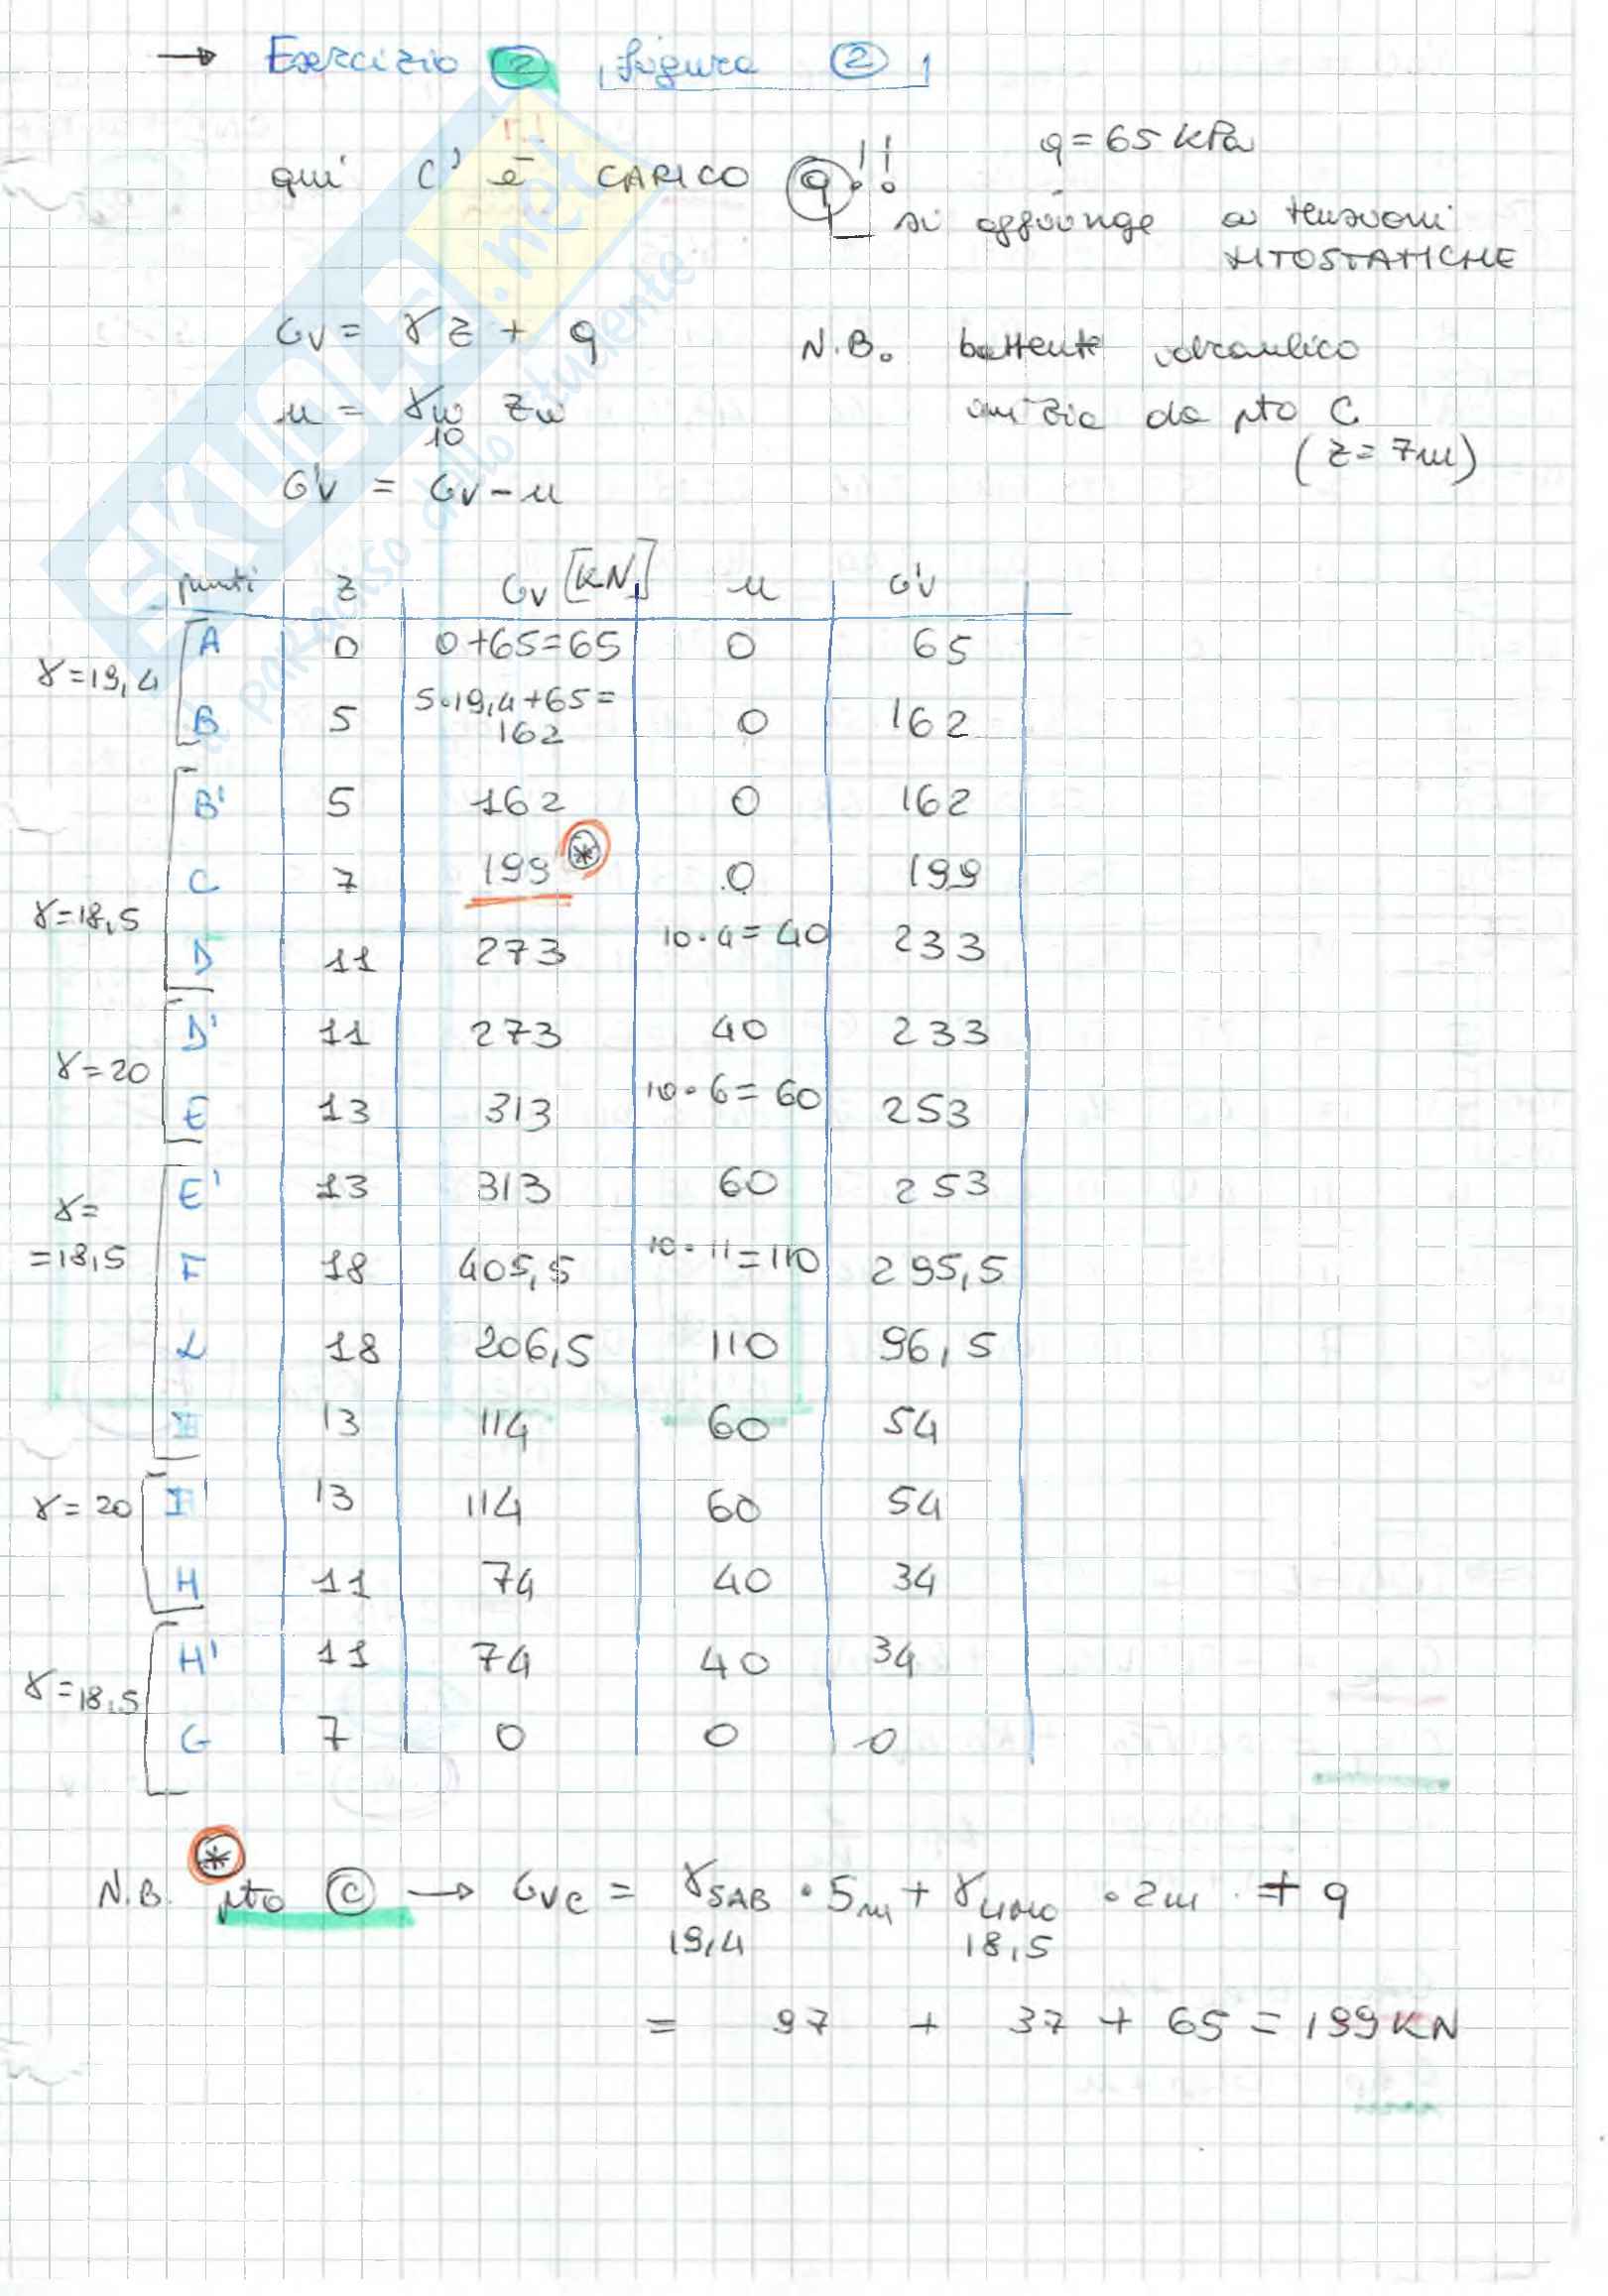 → Esercizio 2 , figura 2
qui c'è CARICO q !!
q = 65 kPa
si aggiunge a tensioni
LITOSTATICHE
σv = γ z + q
u = γw zw
10
σ'v = σv - u
N.B. battente idraulico
inizia da pto C
(z = 7m)
SKUOLA.net
il paradiso dello studente
punti z σv [KN] u σ'v
γ=19,4
A 0 0+65=65 0 65
B 5 5·19,4+65= 162 0 162
B' 5 162 0 162
C 7 199 * 0 199
γ=18,5
D 11 273 10·4=40 233
D' 11 273 40 233
γ=20
E 13 313 10·6=60 253
E' 13 313 60 253
γ=
=18,5
F 18 405,5 10·11=110 295,5
L 18 206,5 110 96,5
I 13 114 60 54
γ=20
I' 13 114 60 54
H 11 74 40 34
H' 11 74 40 34
γ=18,5
G 7 0 0 0
N.B. * pto C → σvc = γSAB · 5m + γLIMO · 2m + q
19,4 18,5
= 97 + 37 + 65 = 199 KN